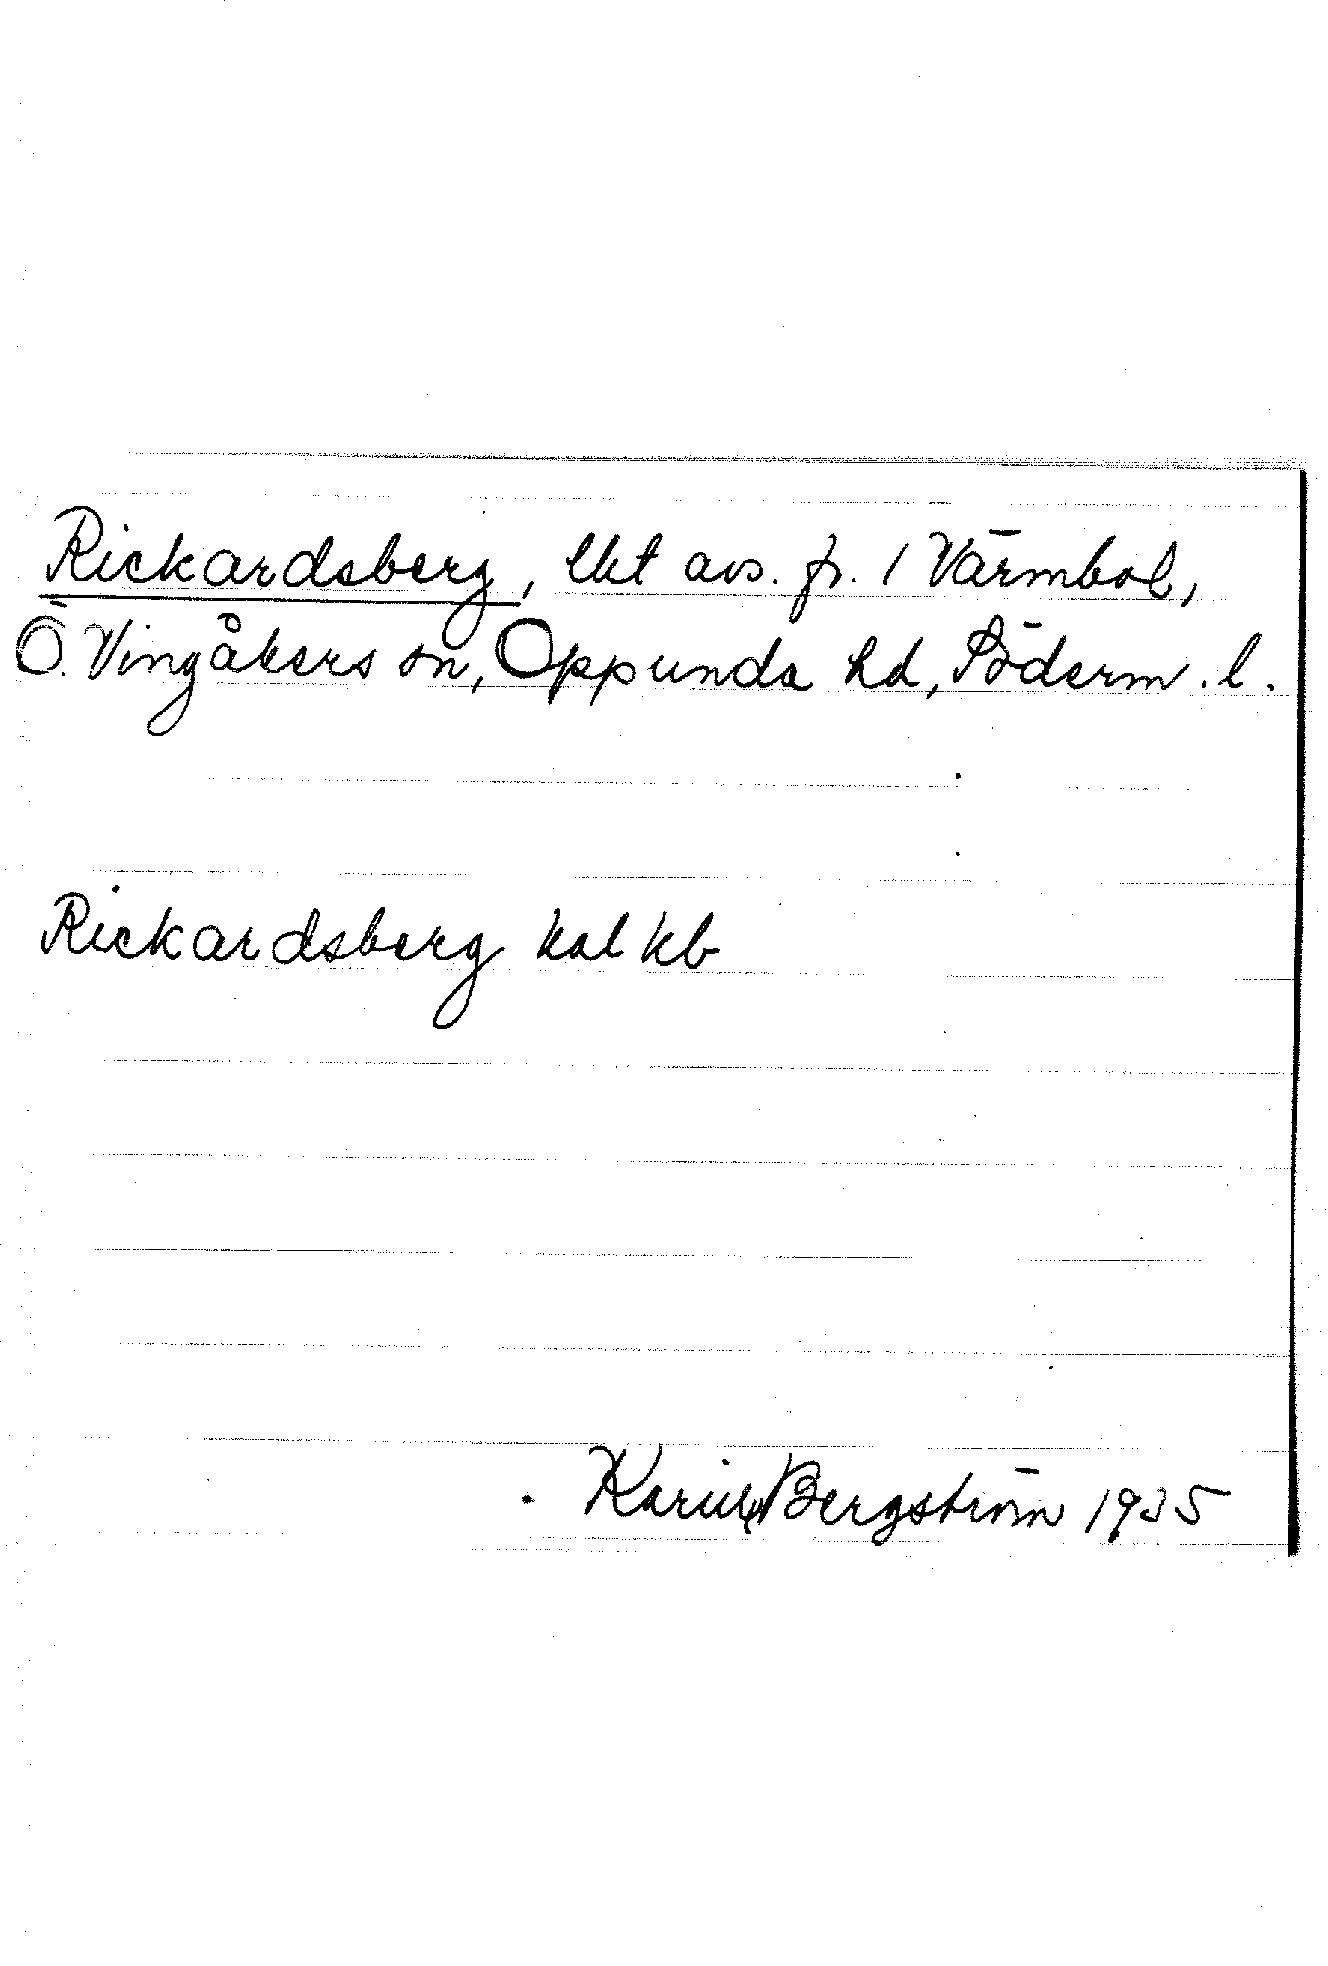 Rickardsberg, lht avs. fr. 1 Värmbol,
Ö. Vingåkers sn, Oppunda hd, Söderm. l.
Rickardsberg kbl kb
Karin Bergström 1935